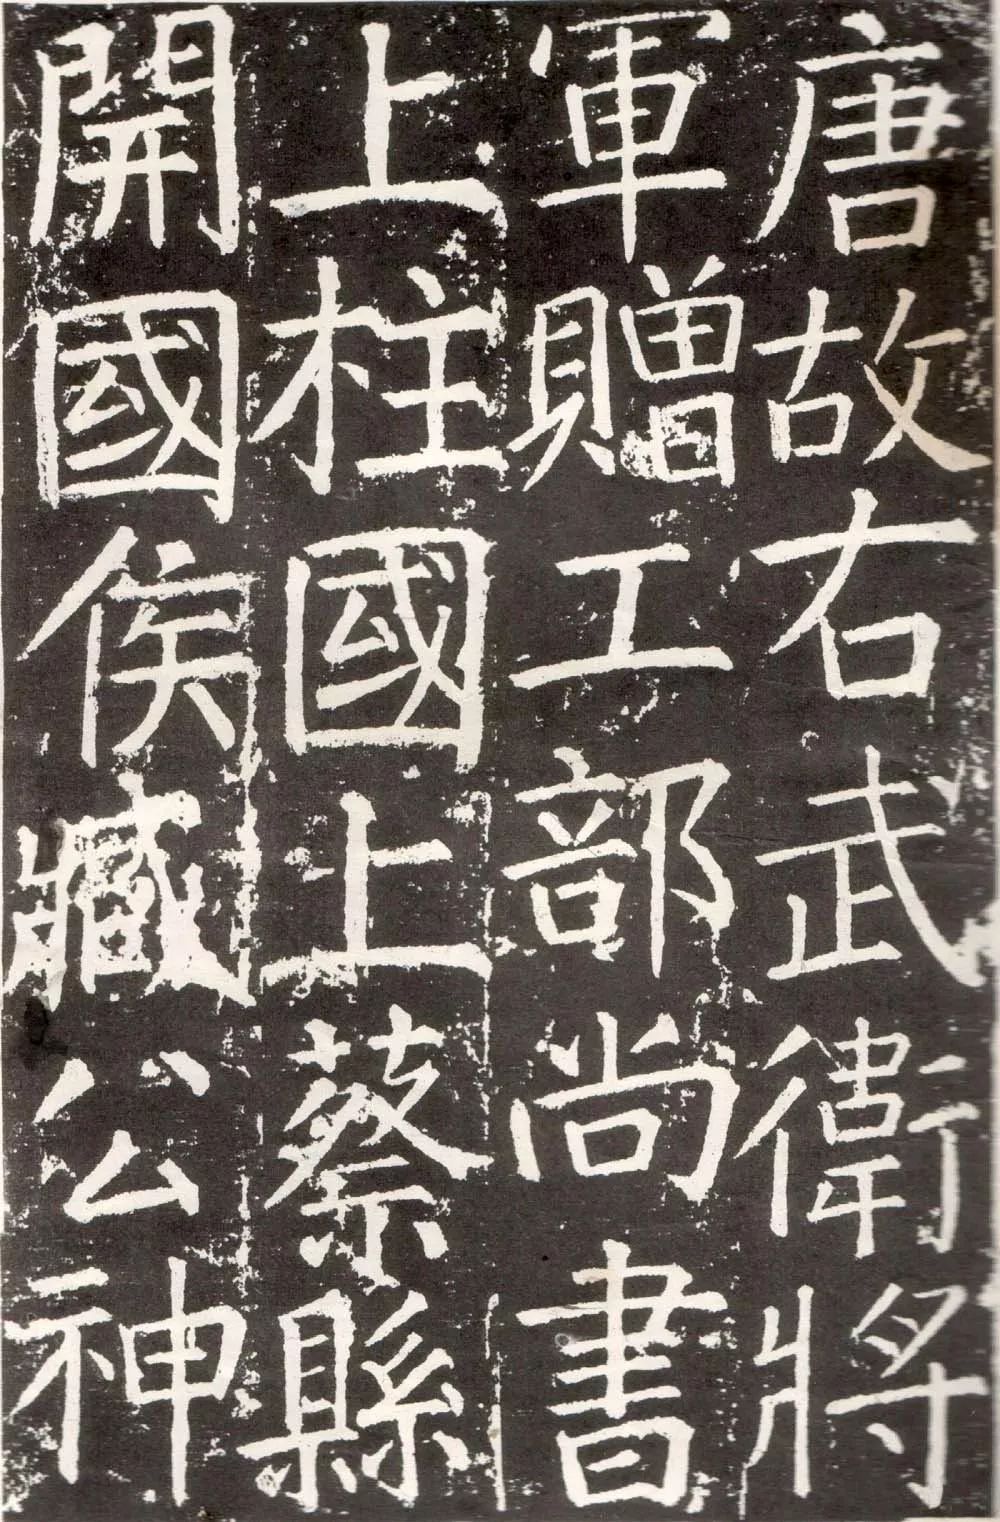 唐故右武衛將
軍贈工部尚書
上柱國上蔡縣
開國侯臧公神